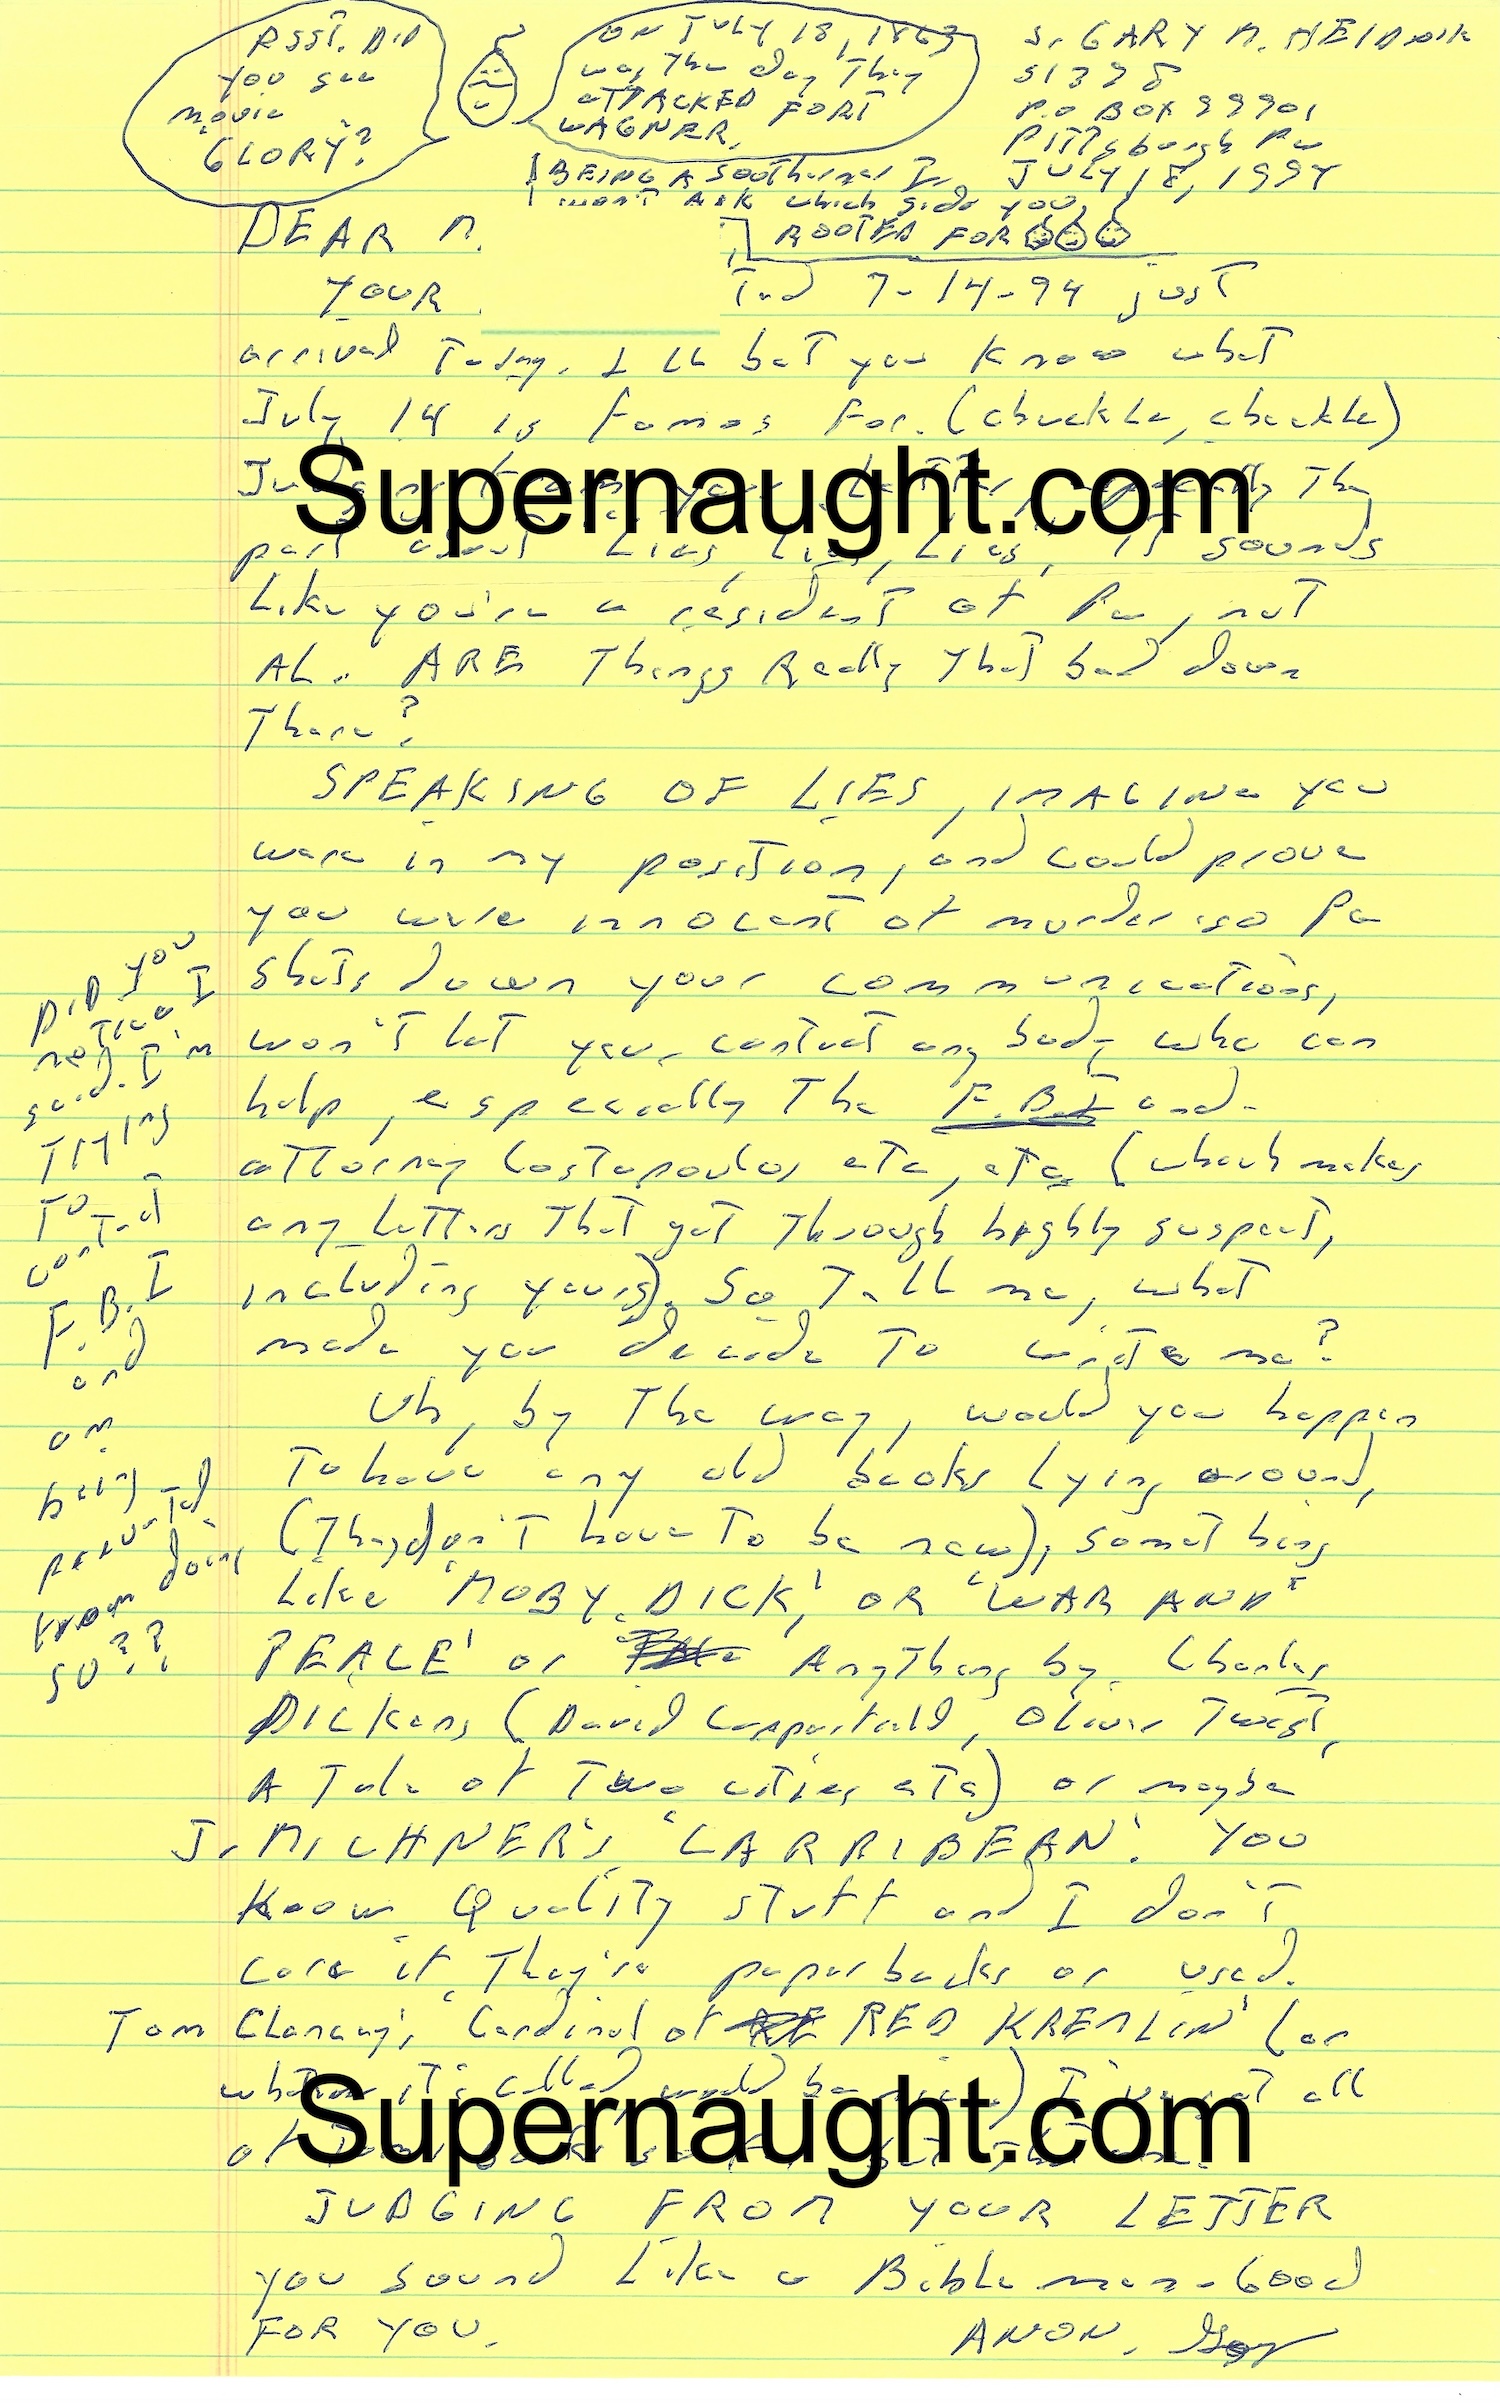 PSST. DID
you see
movie
GLORY?
ON JULY 18, 1863
was the day they
ATTACKED FORT
WAGNER.
BEING A Southerner I
won't Ask which side you
ROOTED FOR
S. GARY M. HEIDNIK
P.O BOX 99901
Pittsburgh Pa
JULY 18, 1994
DEAR M.
YOUR
Ted 7-14-94 just
arrived Today. I'll bet you know what
July 14 is famos for. (chuckle, chuckle)
Supernaught.com
part about Lies, Lies, Lies, it sounds
Like you're a resident of Pa, not
AL. ARE Things Really That bad down
There?
SPEAKING OF LIES, IMAGINe you
were in my position, and could prove
you were innocent of murder so Pa
shuts down your communications,
won't let you contact any body who can
help, especially The F.B.I and
attorney Costopoulos etc, etc (which makes
any letters That get Through highly suspect,
including yours). So Tell me, what
made you decide To write me?
Uh, by The way, would you happen
To have any old books lying around,
(They don't have To be new), something
Like 'MOBY DICK', OR 'WAR AND
PEACE' or Anything by Charles
DICKens (David Copperfield, Oliver Twist,
A Tale of Two cities etc) or maybe
J. MICHNER'S 'CARRIBEAN'. You
Know Quality stuff and I don't
care if They're paperbacks or used.
Tom Clancy's 'Cardinal of RED KREMLIN' (or
whatever it's called would be nice)
Supernaught.com
JUDGING FROM YOUR LETTER
you sound Like a Bible man - Good
FOR YOU.
ANON, Gary
DID you
notice I
said I'm
Trying
To
contact
F.B.I
and
am
being
prevented
from doing
so??